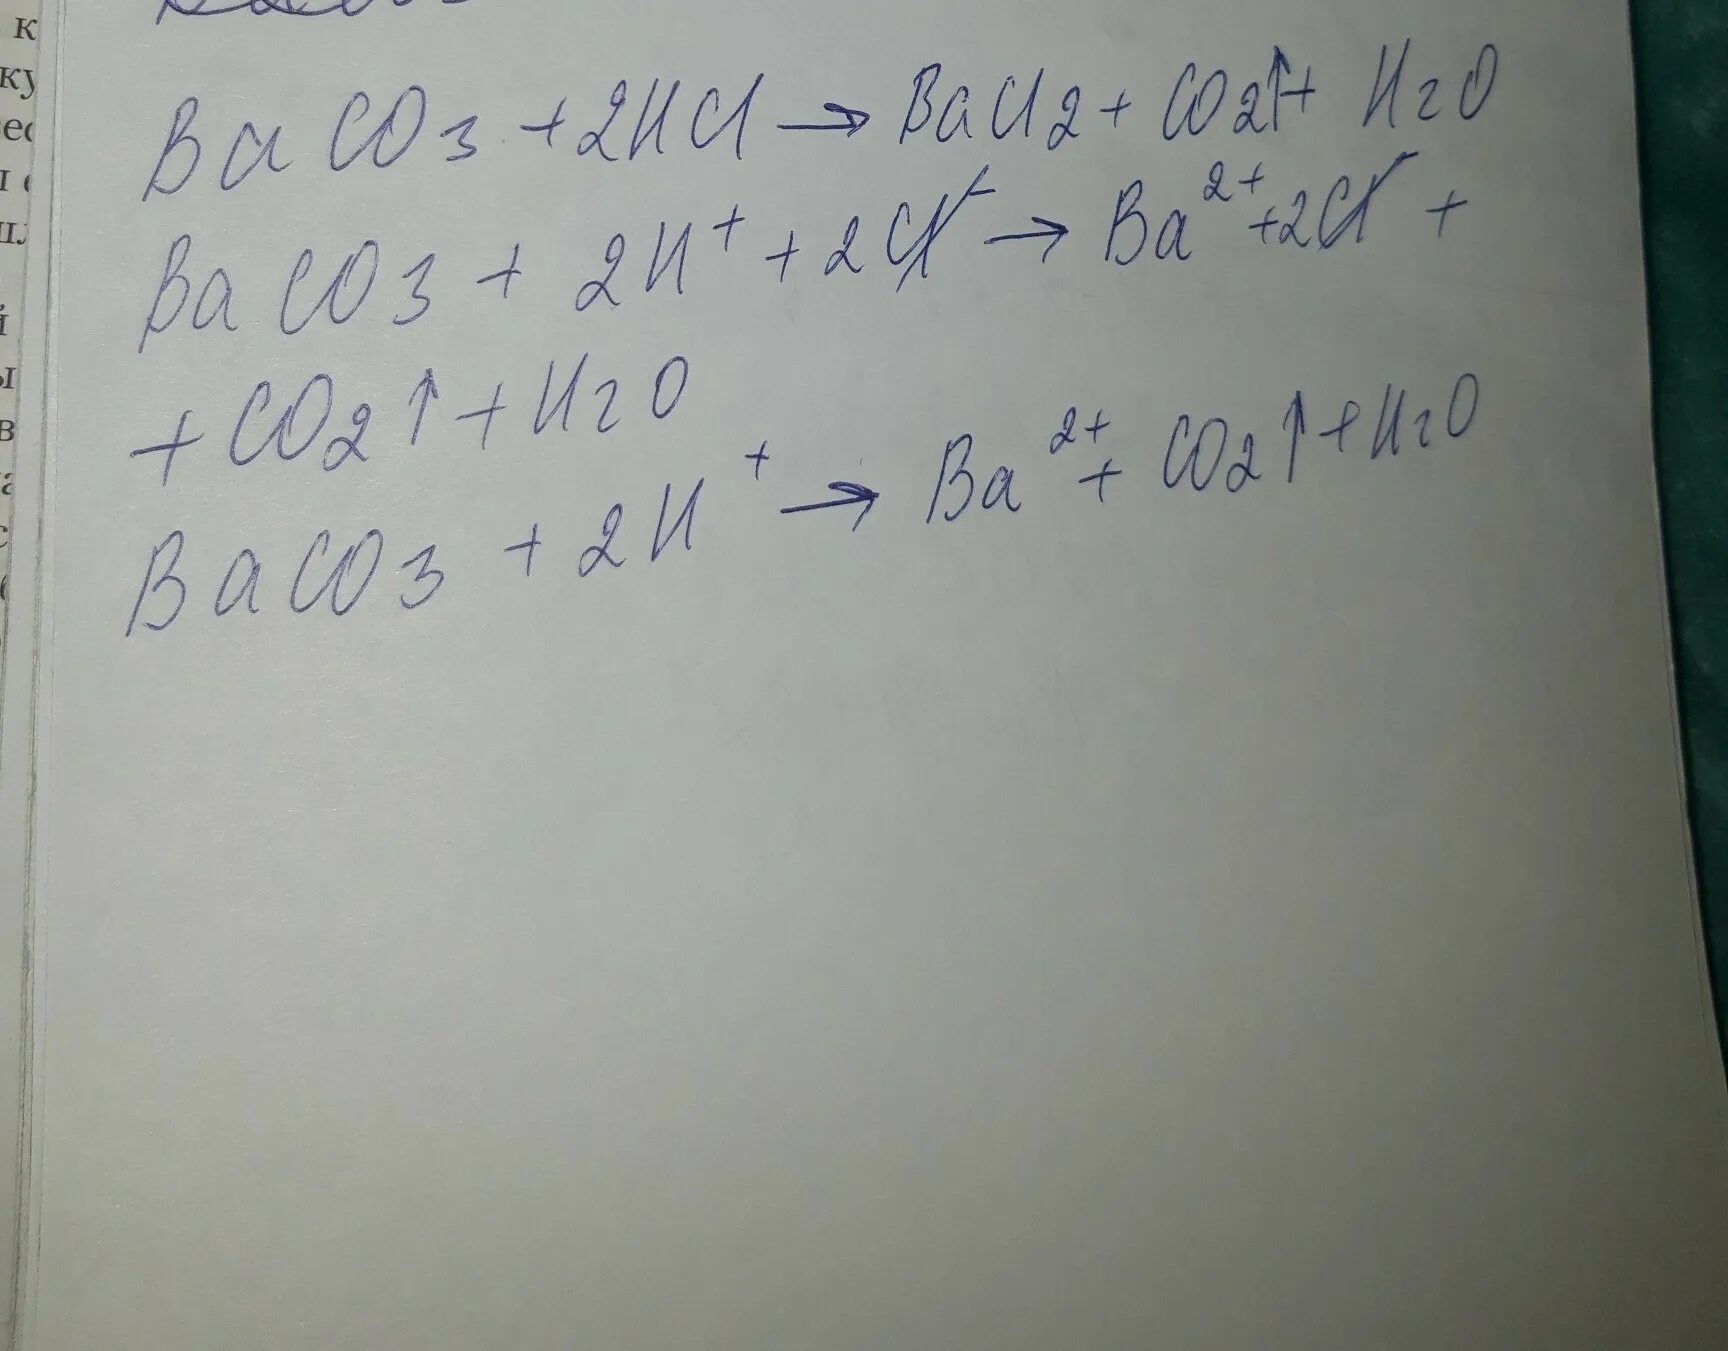 BaCO3 + 2HCl → BaCl2 + CO2↑ + H2O
BaCO3 + 2H⁺ + 2Cl⁻ → Ba²⁺ + 2Cl⁻ +
+ CO2↑ + H2O
BaCO3 + 2H⁺ → Ba²⁺ + CO2↑ + H2O